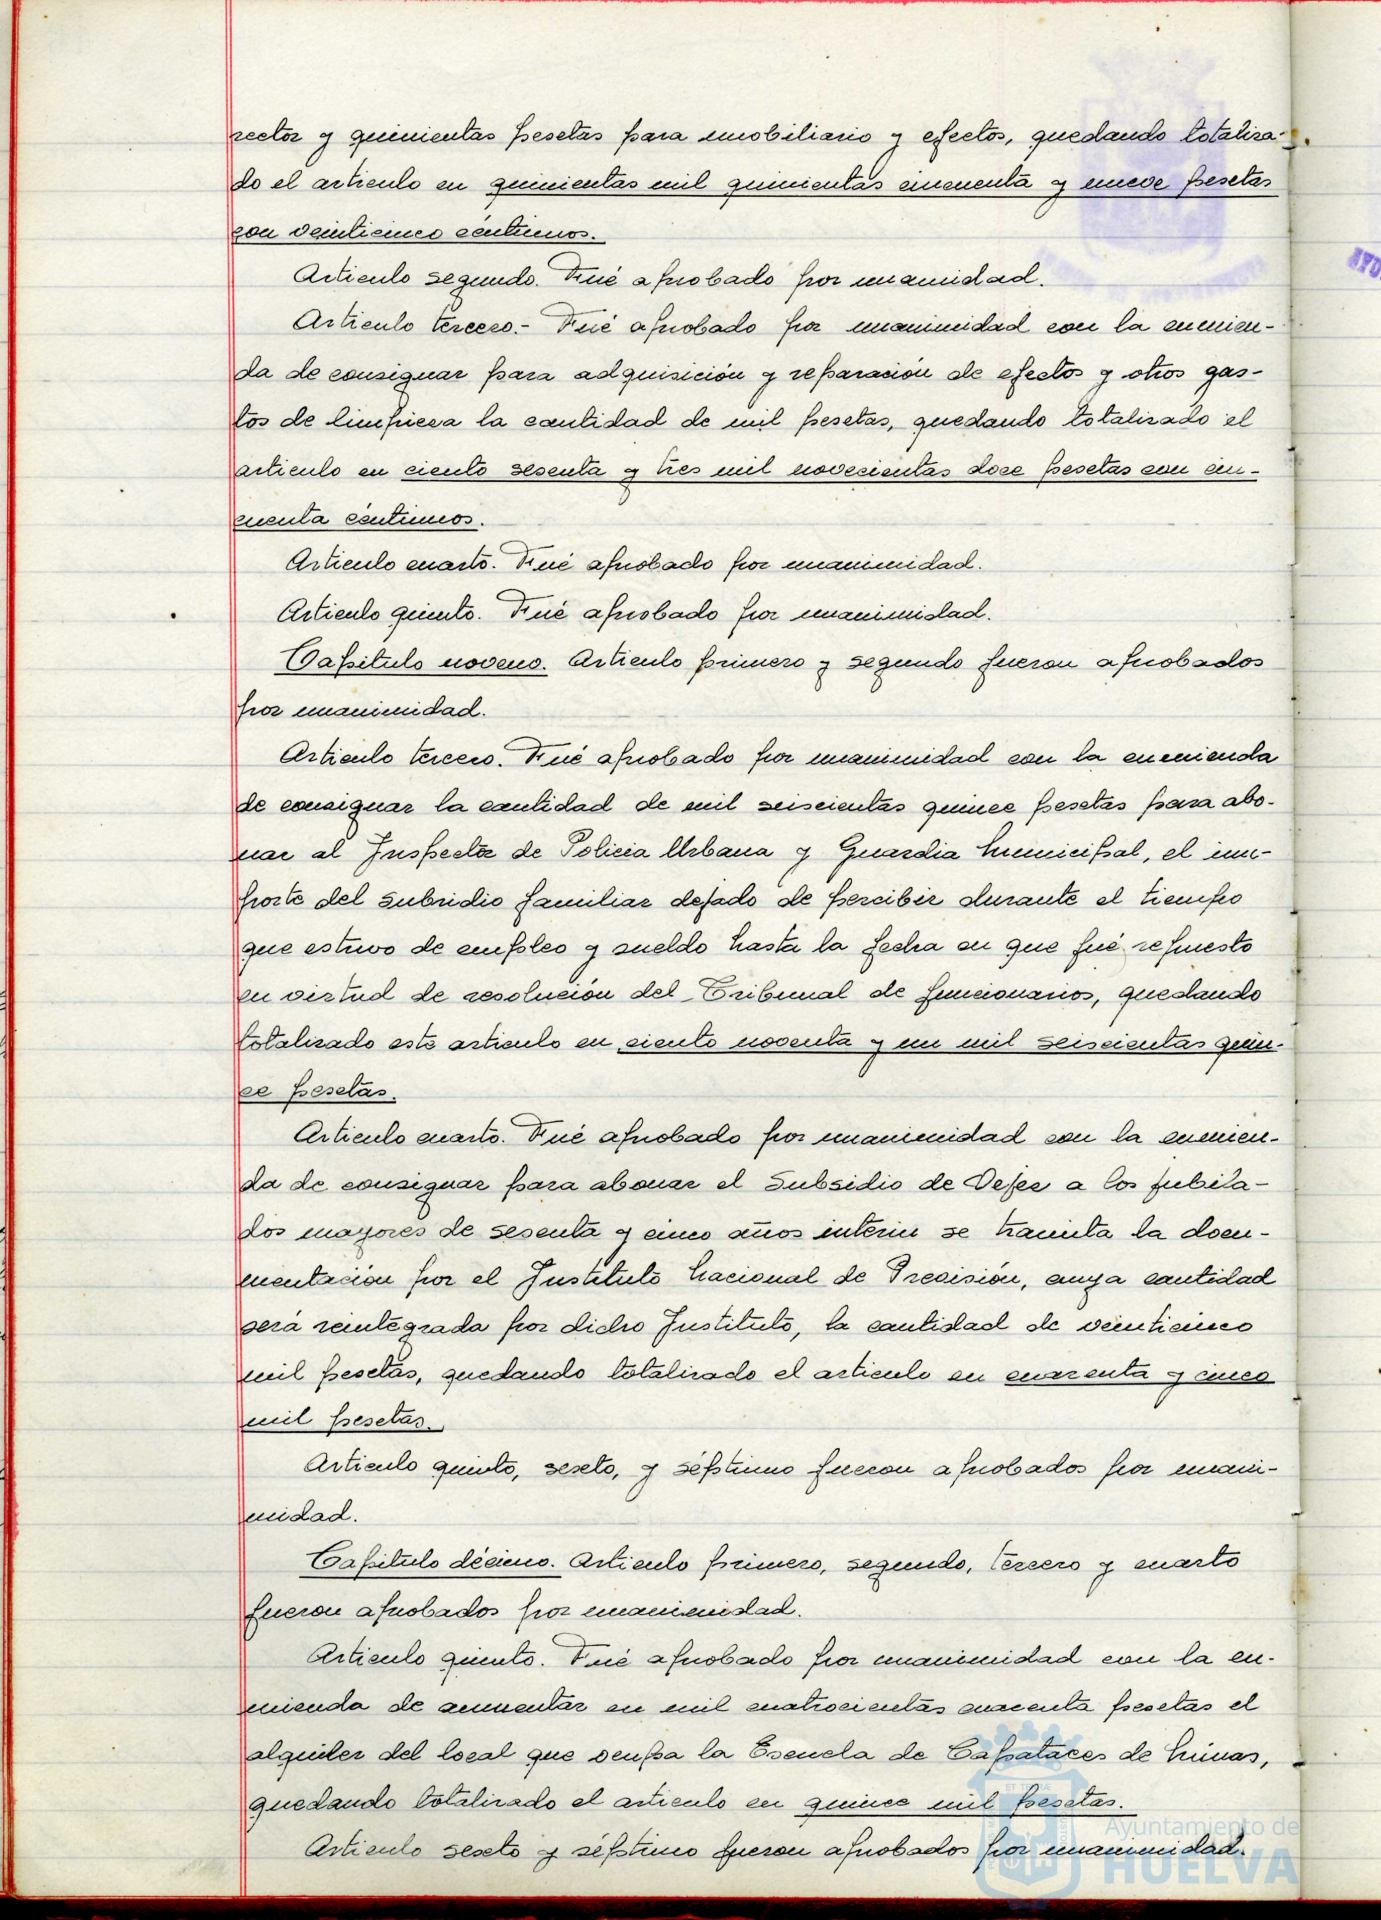 rector y quinientas pesetas para mobiliario y efectos, quedando totaliza-
do el articulo en quinientas mil quinientas cincuenta y nueve pesetas
con veinticinco céntimos.
Articulo segundo. Fué aprobado por unanimidad.
Articulo tercero.- Fué aprobado por unanimidad con la enmien-
da de consignar para adquisición y reparación de efectos y otros gas-
tos de limpieza la cantidad de mil pesetas, quedando totalizado el
articulo en ciento sesenta y tres mil novecientas doce pesetas con cin-
cuenta céntimos.
Articulo cuarto. Fué aprobado por unanimidad.
Articulo quinto. Fué aprobado por unanimidad.
Capitulo noveno. Articulo primero y segundo fueron aprobados
por unanimidad.
Articulo tercero. Fué aprobado por unanimidad con la enmienda
de consignar la cantidad de mil seiscientas quince pesetas para abo-
nar al Inspector de Policia Urbana y Guardia Municipal, el im-
porte del subsidio familiar dejado de percibir durante el tiempo
que estuvo de empleo y sueldo hasta la fecha en que fué repuesto
en virtud de resolución del Tribunal de funcionarios, quedando
totalizado este articulo en ciento noventa y un mil seiscientas quin-
ce pesetas.
Articulo cuarto. Fué aprobado por unanimidad con la enmien-
da de consignar para abonar el Subsidio de Vejez a los jubila-
dos mayores de sesenta y cinco años interin se tramita la docu-
mentación por el Instituto Nacional de Previsión, cuya cantidad
será reintegrada por dicho Instituto, la cantidad de veinticinco
mil pesetas, quedando totalizado el articulo en cuarenta y cinco
mil pesetas.
Articulo quinto, sexto, y séptimo fueron aprobados por unani-
midad.
Capitulo décimo. Articulo primero, segundo, tercero y cuarto
fueron aprobados por unanimidad.
Articulo quinto. Fué aprobado por unanimidad con la en-
mienda de aumentar en mil cuatrocientas cuarenta pesetas el
alquiler del local que ocupa la Escuela de Capataces de Minas,
quedando totalizado el articulo en quince mil pesetas.
Articulo sexto y séptimo fueron aprobados por unanimidad.
Ayuntamiento de
HUELVA